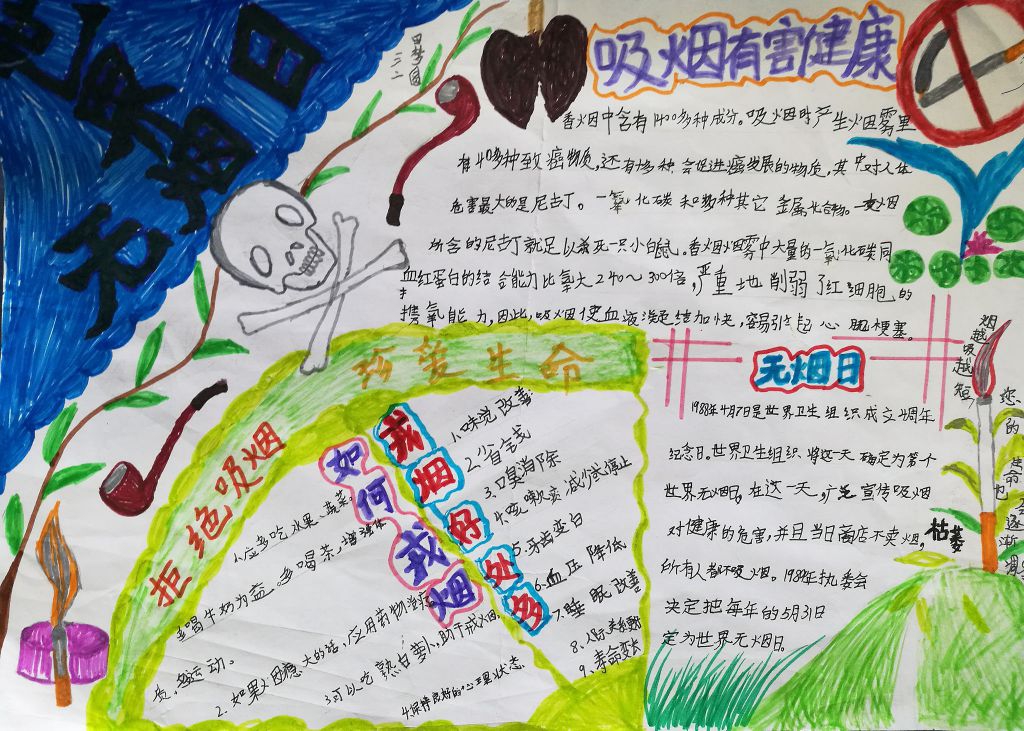 世界
无烟日
吸烟有害健康
香烟中含有1400多种成分。吸烟时产生烟雾里
有40多种致癌物质,还有多种会促进癌发展的物质,其中对人体
危害最大的是尼古丁。一氧化碳和多种其它金属化合物。一支烟
所含的尼古丁就足以杀死一只小白鼠。香烟烟雾中大量的一氧化碳同
血红蛋白的结合能力比氧大240~300倍,严重地削弱了红细胞的
携氧能力,因此,吸烟使血液凝结加快,容易引起心肌梗塞。
珍爱生命
拒绝吸烟
无烟日
1988年4月7日是世界卫生组织成立40周年
纪念日。世界卫生组织将这一天确定为第一个
世界无烟日。在这一天,广泛宣传吸烟
对健康的危害,并且当日商店不卖烟,
所有人都不吸烟。1989年执委会
决定把每年的5月31日
定为世界无烟日。
烟越吸越短
您的生命也会逐渐
枯萎
戒烟好处多
1.味觉改善
2.省钱
3.口臭消除
4.咳嗽、痰减少或停止
5.牙齿变白
6.血压降低
7.睡眠改善
9.寿命变长
如何戒烟
1.应多吃水果、蔬菜,
多喝牛奶为益。多喝茶,增强体
质,勤运动。
2.如果烟瘾大的话,应用药物治疗
3.可以吃熟白萝卜,助于戒烟。
4.保持良好的心理状态